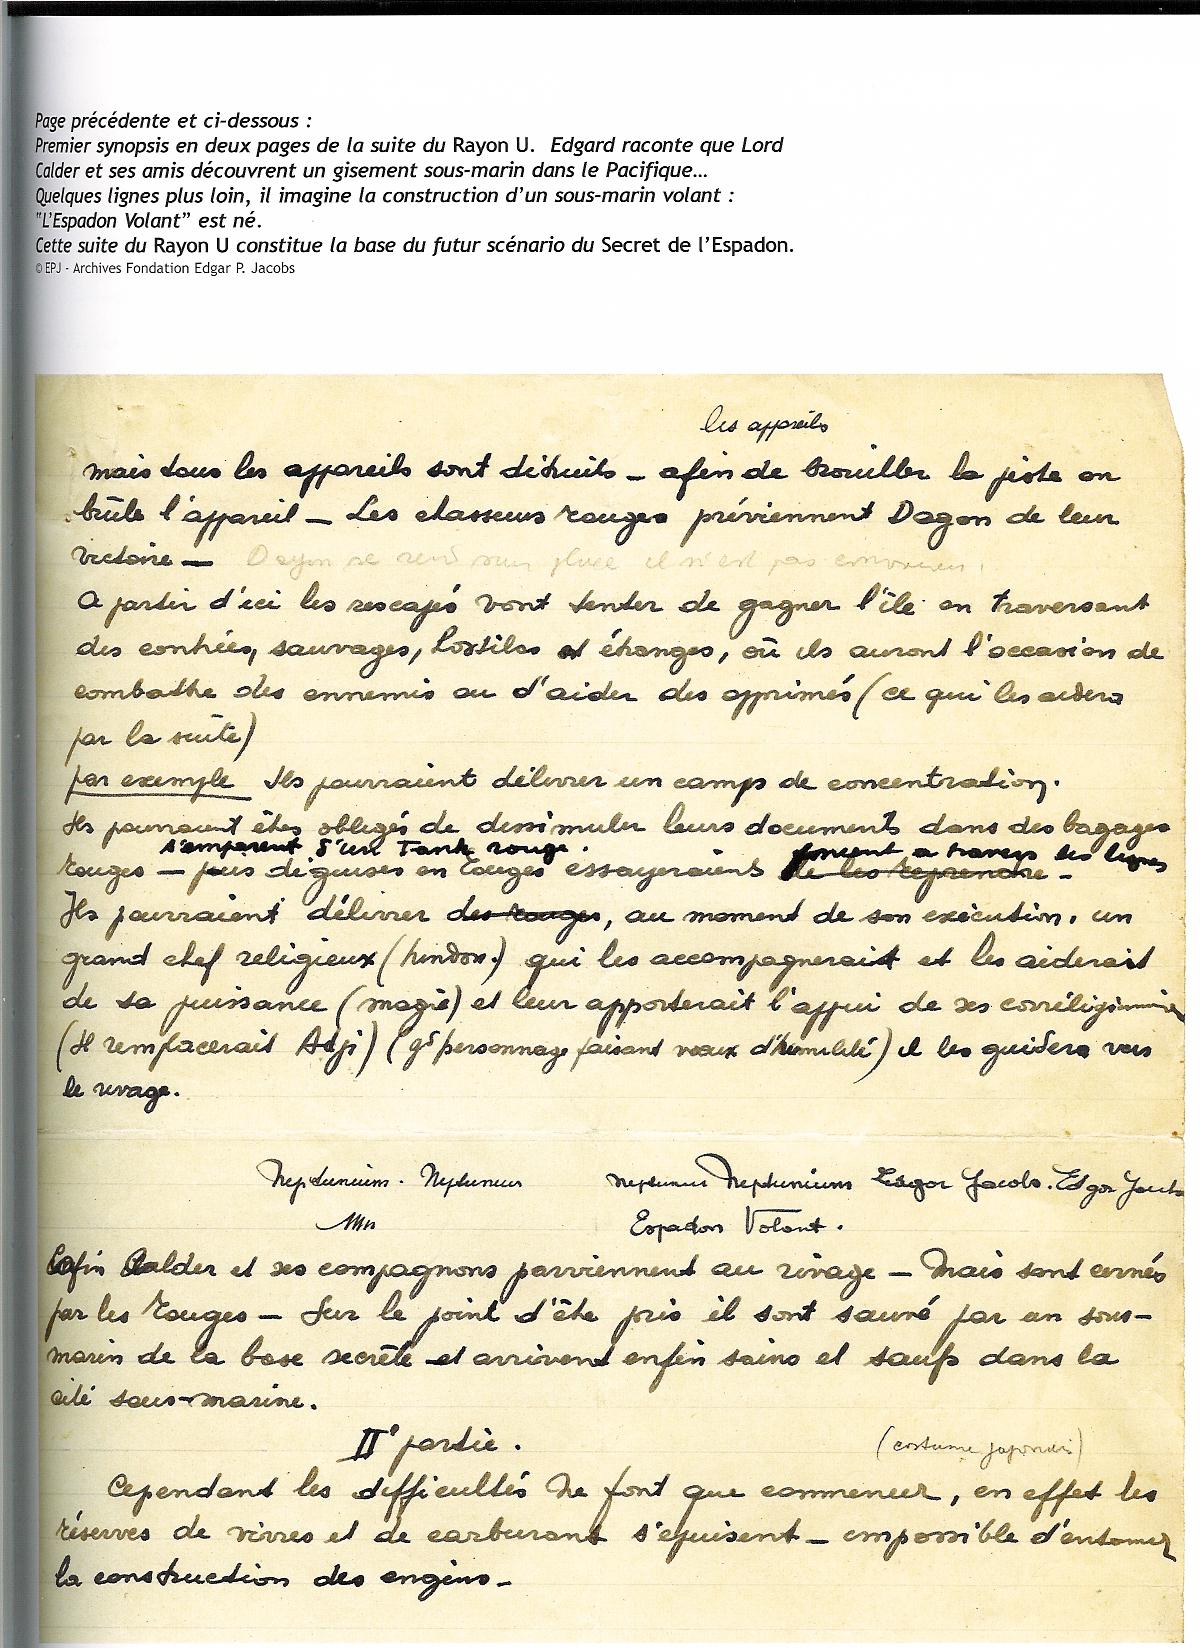 Page précédente et ci-dessous :
Premier synopsis en deux pages de la suite du Rayon U. Edgard raconte que Lord
Calder et ses amis découvrent un gisement sous-marin dans le Pacifique...
Quelques lignes plus loin, il imagine la construction d'un sous-marin volant :
"L'Espadon Volant" est né.
Cette suite du Rayon U constitue la base du futur scénario du Secret de l'Espadon.
© EPJ - Archives Fondation Edgar P. Jacobs
les appareils
mais tous les appareils sont détruits _ afin de brouiller la piste on
brûle l'appareil _ Les chasseurs rouges préviennent Dagon de leur
victoire — Dagon se rend sur place il n'est pas convaincu.
A partir d'ici les rescapés vont tenter de gagner l'île en traversant
des contrées, sauvages, hostiles et étranges, où ils auront l'occasion de
combattre des ennemis ou d'aider des opprimés (ce qui les aidera
par la suite)
par exemple Ils pourraient délivrer un camps de concentration.
Ils pourraient êtes obligés de dissimuler leurs documents dans des bagages
s'emparent d'un Tank rouge. foncent a travers les lignes
rouges — puis déguisés en rouges essayeraient de les reprendre _
Ils pourraient délivrer des rouges, au moment de son exécution, un
grand chef religieux (hindou.) qui les accompagnerait et les aiderait
de sa puissance (magie) et leur apporterait l'appui de ses corréligionnaires
(Il remplacerait Adji) (gd personnage faisant vœux d'humilité) il les guidera vers
le rivage.
Neptunium. Neptuneus neptuneus Neptunium Edgar Jacobs. Edgar Jacobs
Espadon Volant.
Enfin Calder et ses compagnons parviennent au rivage _ Mais sont cernés
par les rouges _ Sur le point d'être pris il sont sauvé par un sous-
marin de la base secrète et arrivent enfin sains et saufs dans la
cité sous-marine.
IIe partie. (costume japonais)
Cependant les difficultés ne font que commencer, en effet les
réserves de vivres et de carburant s'épuisent _ impossible d'entamer
la construction des engins _